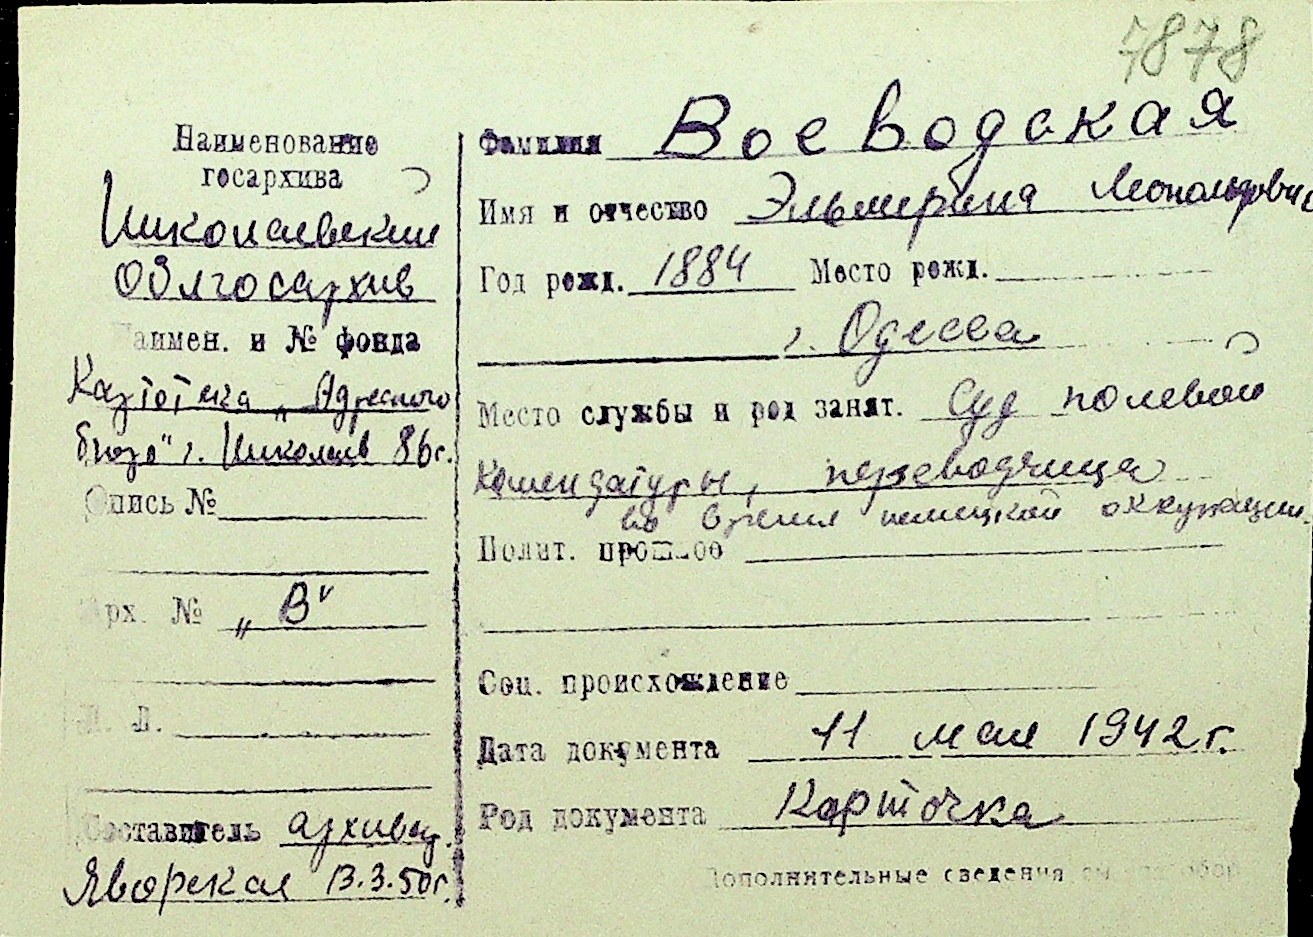 7878
Наименование
госархива
Николаевский
Облгосархив
Наимен. и № фонда
Картотека „Адресного
бюро" г. Николаев 86г.
Опись №
Арх. № „В"
Л. Л.
Составитель архивар.
Яворская 13.3.50г.
Фамилия Воеводская
Имя и отчество Эльмирина Леопольдовна
Год рожд. 1884 Место рожд.
г. Одесса
Место службы и род занят. Суд полевой
Комендатуры, переводчица
во время немецкой оккупации.
Полит. прошлое
Соц. происхождение
Дата документа 11 мая 1942 г.
Род документа Карточка
Дополнительные сведения см. на обор